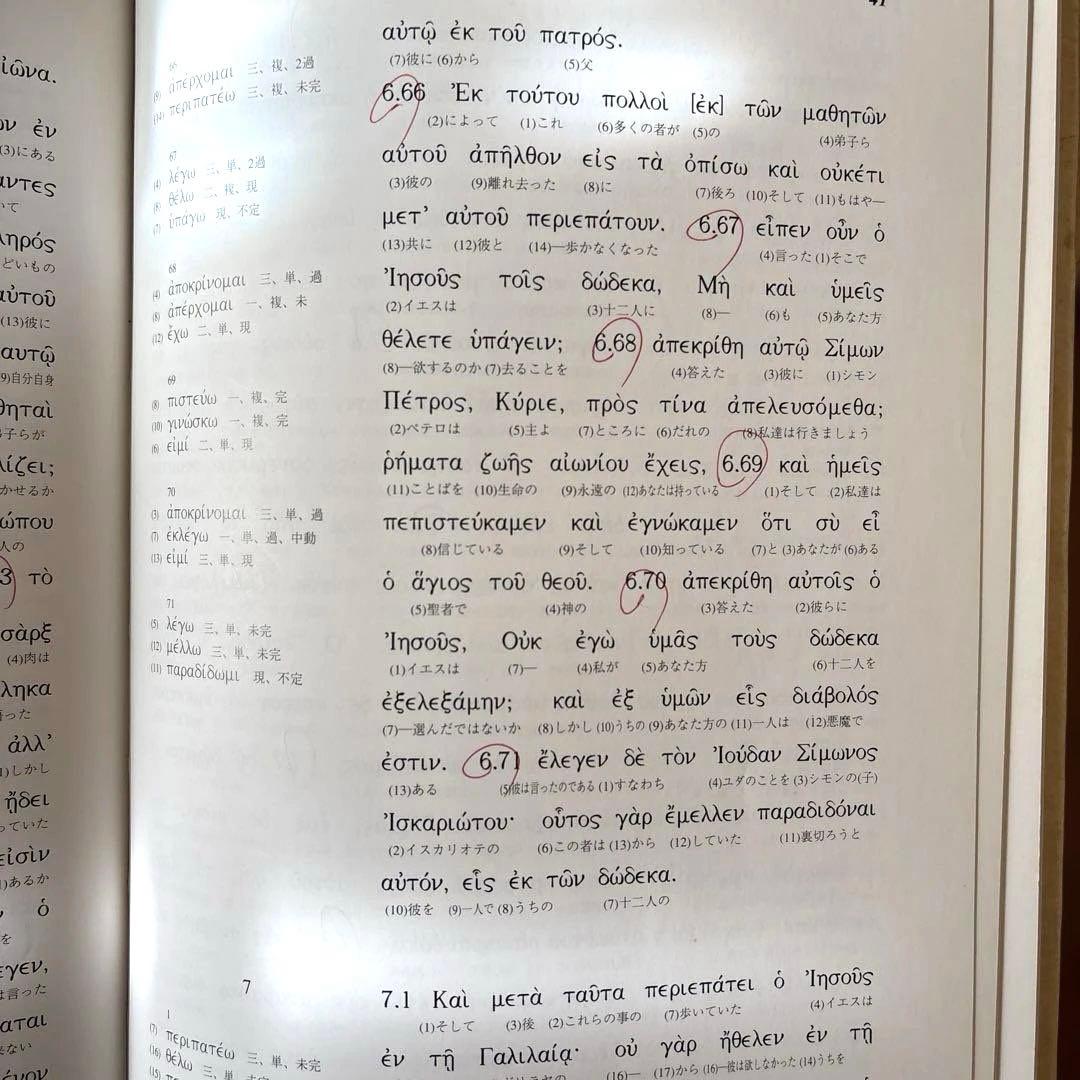 41
αὐτῷ ἐκ τοῦ πατρός.
(7)彼に (6)から (5)父
6.66 Ἐκ τούτου πολλοὶ [ἐκ] τῶν μαθητῶν
(2)によって (1)これ (6)多くの者が (5)の (4)弟子ら
αὐτοῦ ἀπῆλθον εἰς τὰ ὀπίσω καὶ οὐκέτι
(3)彼の (9)離れ去った (8)に (7)後ろ (10)そして (11)もはや—
μετ’ αὐτοῦ περιεπάτουν. 6.67 εἶπεν οὖν ὁ
(13)共に (12)彼と (14)—歩かなくなった (4)言った (1)そこで
Ἰησοῦς τοῖς δώδεκα, Μὴ καὶ ὑμεῖς
(2)イエスは (3)十二人に (8)— (6)も (5)あなた方
θέλετε ὑπάγειν; 6.68 ἀπεκρίθη αὐτῷ Σίμων
(8)—欲するのか (7)去ることを (4)答えた (3)彼に (1)シモン
Πέτρος, Κύριε, πρὸς τίνα ἀπελευσόμεθα;
(2)ペテロは (5)主よ (7)ところに (6)だれの (8)私達は行きましょう
ῥήματα ζωῆς αἰωνίου ἔχεις, 6.69 καὶ ἡμεῖς
(11)ことばを (10)生命の (9)永遠の (12)あなたは持っている (1)そして (2)私達は
πεπιστεύκαμεν καὶ ἐγνώκαμεν ὅτι σὺ εἶ
(8)信じている (9)そして (10)知っている (7)と (3)あなたが (6)ある
ὁ ἅγιος τοῦ θεοῦ. 6.70 ἀπεκρίθη αὐτοῖς ὁ
(5)聖者で (4)神の (3)答えた (2)彼らに
Ἰησοῦς, Οὐκ ἐγὼ ὑμᾶς τοὺς δώδεκα
(1)イエスは (7)— (4)私が (5)あなた方 (6)十二人を
ἐξελεξάμην; καὶ ἐξ ὑμῶν εἷς διάβολός
(7)—選んだではないか (8)しかし (10)うちの (9)あなた方の (11)一人は (12)悪魔で
ἐστιν. 6.71 ἔλεγεν δὲ τὸν Ἰούδαν Σίμωνος
(13)ある (5)彼は言ったのである (1)すなわち (4)ユダのことを (3)シモンの(子)
Ἰσκαριώτου· οὗτος γὰρ ἔμελλεν παραδιδόναι
(2)イスカリオテの (6)この者は (13)から (12)していた (11)裏切ろうと
αὐτόν, εἷς ἐκ τῶν δώδεκα.
(10)彼を (9)一人で (8)うちの (7)十二人の
7
7.1 Καὶ μετὰ ταῦτα περιεπάτει ὁ Ἰησοῦς
(1)そして (3)後 (2)これらの事の (7)歩いていた (4)イエスは
ἐν τῇ Γαλιλαίᾳ· οὐ γὰρ ἤθελεν ἐν τῇ
(16)— (17)から (16)—彼は欲しなかった (14)うちを
66
(9) ἀπέρχομαι 三、複、2過
(14) περιπατέω 三、複、未完
67
(4) λέγω 三、単、2過
(8) θέλω 二、複、現
(7) ὑπάγω 現、不定
68
(4) ἀποκρίνομαι 三、単、過
(8) ἀπέρχομαι 一、複、未
(12) ἔχω 二、単、現
69
(8) πιστεύω 一、複、完
(10) γινώσκω 一、複、完
(6) εἰμί 二、単、現
70
(3) ἀποκρίνομαι 三、単、過
(7) ἐκλέγω 一、単、過、中動
(13) εἰμί 三、単、現
71
(5) λέγω 三、単、未完
(12) μέλλω 三、単、未完
(11) παραδίδωμι 現、不定
1
(7) περιπατέω 三、単、未完
(16) θέλω 三、単、未完
(15)
ἰῶνα.
ἐν
(3)にある
αντες
いて
ληρός
どいもの
αὐτοῦ
(13)彼に
αυτῷ
(9)自分自身
θηταὶ
弟子らが
λίζει;
かせるか
ώπου
人の
3 τὸ
σὰρξ
(4)肉は
ληκα
語った
ἀλλ’
しかし
ᾔδει
っていた
εἰσὶν
あるか
ὁ
を
εγεν,
は言った
αται
来ない
ένον